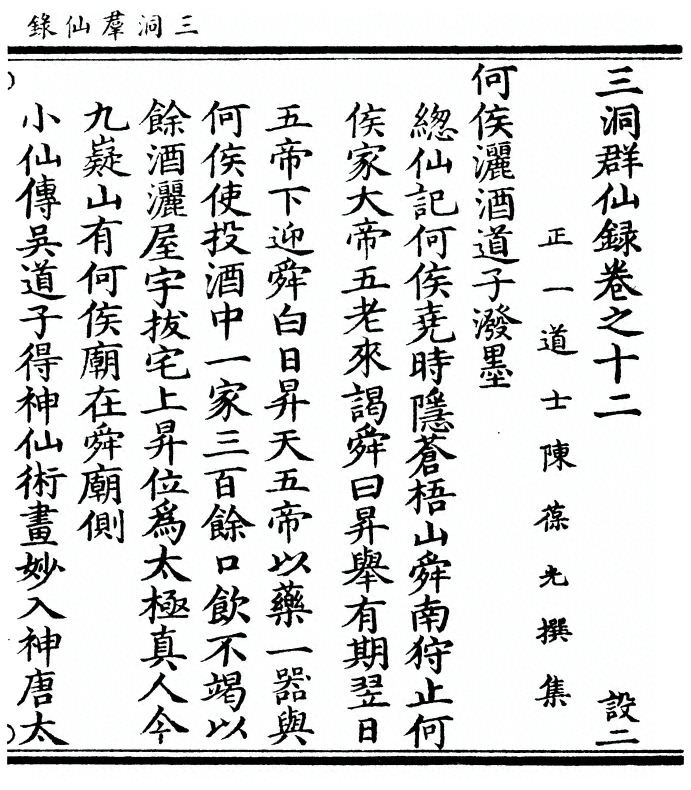 三洞羣仙錄
三洞群仙録卷之十二 設二
正一道士陳葆光撰集
何侯灑酒道子潑墨
總仙記何侯堯時隱蒼梧山舜南狩止何
侯家大帝五老來謁舜曰昇舉有期翌日
五帝下迎舜白日昇天五帝以藥一器與
何侯使投酒中一家三百餘口飲不竭以
餘酒灑屋宇拔宅上昇位爲太極真人今
九嶷山有何侯廟在舜廟側
小仙傳吳道子得神仙術畫妙入神唐太